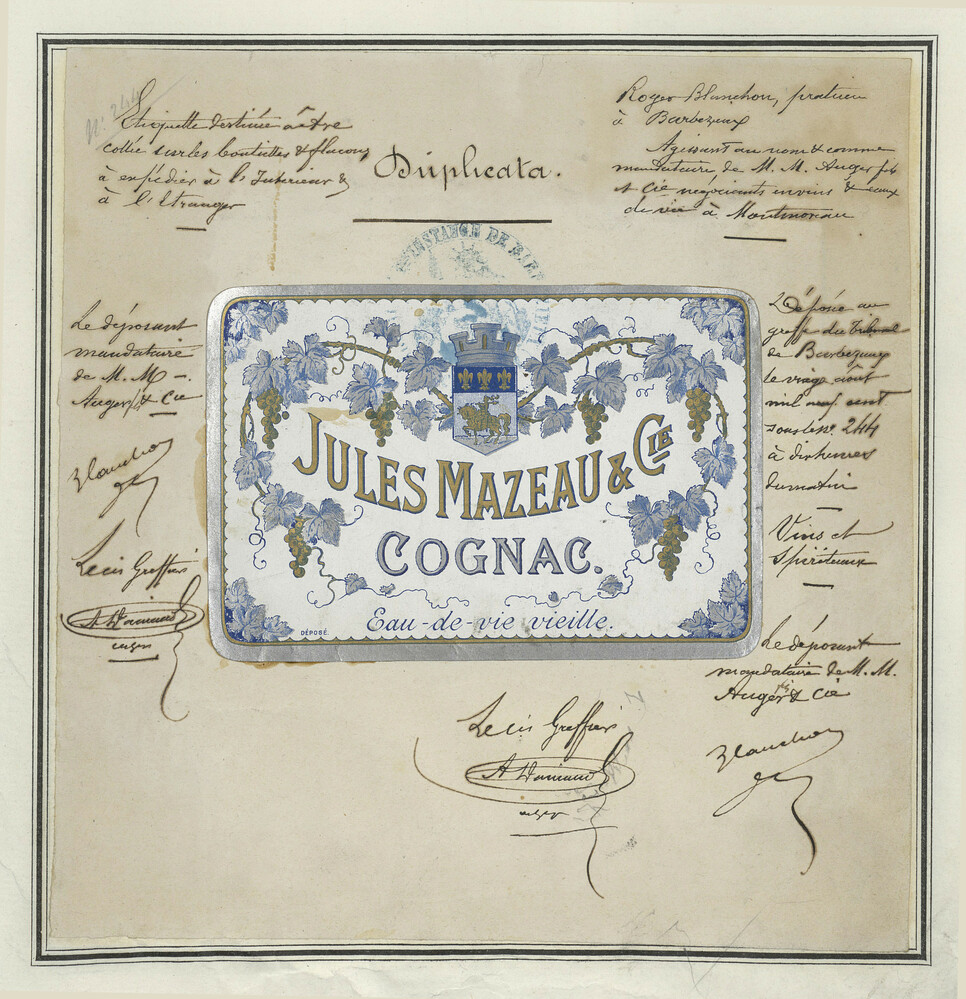 N° 244
Etiquette destinée à être
collée sur les bouteilles & flacons
à expédier à l'Interieur &
à l'Etranger
Duplicata.
Roger Blanchon, praticien
à Barbezieux
Agissant au nom & comme
mandataire de M. M. Auger fils
et Cie négociants en vins & eaux
de vie à Montmoreau
INSTANCE DE BAR
Le déposant
mandataire
de M. M.
Auger & Cie
Blanchon
Le cis Greffier
JULES MAZEAU & CIE
COGNAC.
Eau-de-vie vieille.
DÉPOSÉ.
Déposé au
greffe du Tribunal
de Barbezieux
le vingt août
mil neuf cent
sous le n°. 244
à dix heures
du matin
Vins et
Spiritueux
Le déposant
mandataire de M. M.
Auger fils & Cie
Blanchon
Le cis Greffier